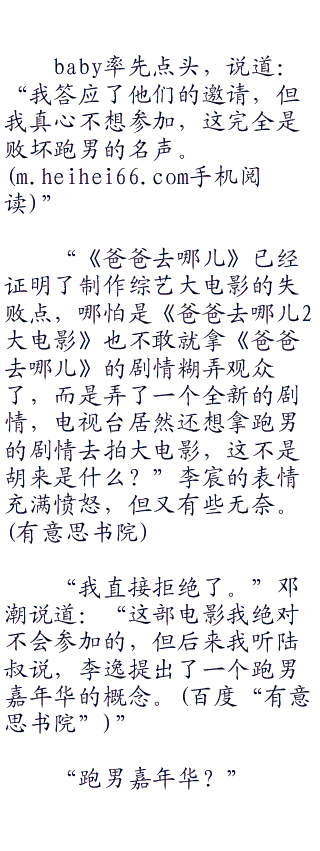 baby率先点头，说道：
“我答应了他们的邀请，但
我真心不想参加，这完全是
败坏跑男的名声。
(m.heihei66.com手机阅
读)”
“《爸爸去哪儿》已经
证明了制作综艺大电影的失
败点，哪怕是《爸爸去哪儿2
大电影》也不敢就拿《爸爸
去哪儿》的剧情糊弄观众
了，而是弄了一个全新的剧
情，电视台居然还想拿跑男
的剧情去拍大电影，这不是
胡来是什么？”李宸的表情
充满愤怒，但又有些无奈。
(有意思书院)
“我直接拒绝了。”邓
潮说道：“这部电影我绝对
不会参加的，但后来我听陆
叔说，李逸提出了一个跑男
嘉年华的概念。(百度“有意
思书院”)”
“跑男嘉年华？”